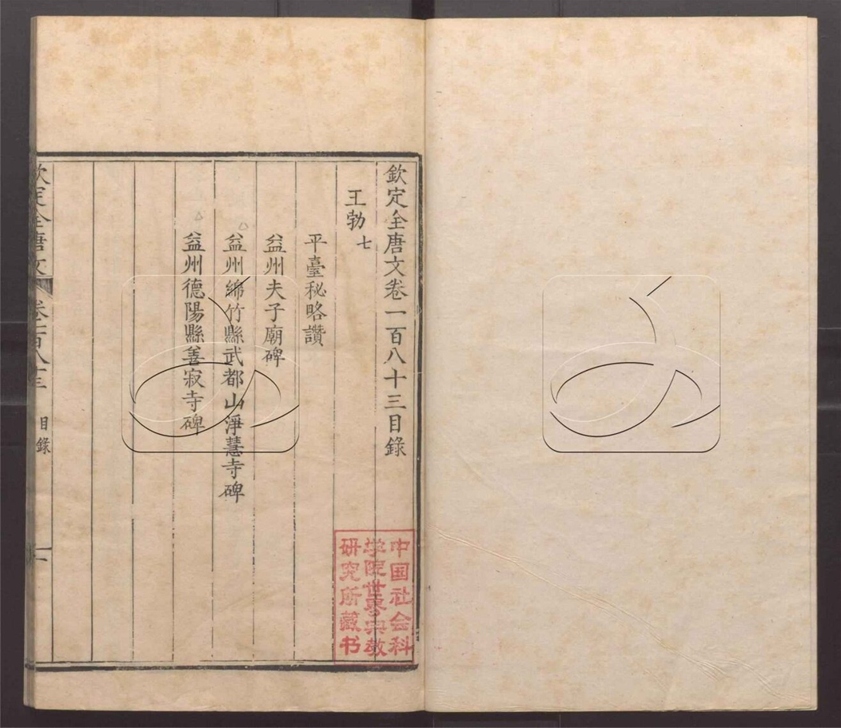 欽定全唐文卷一百八十三目錄
王勃七
平臺秘略讚
益州夫子廟碑
益州綿竹縣武都山淨慧寺碑
益州德陽縣善寂寺碑
欽定全唐文
卷一百八十三
目錄
一
中国社会科
学院世界宗教
研究所藏书